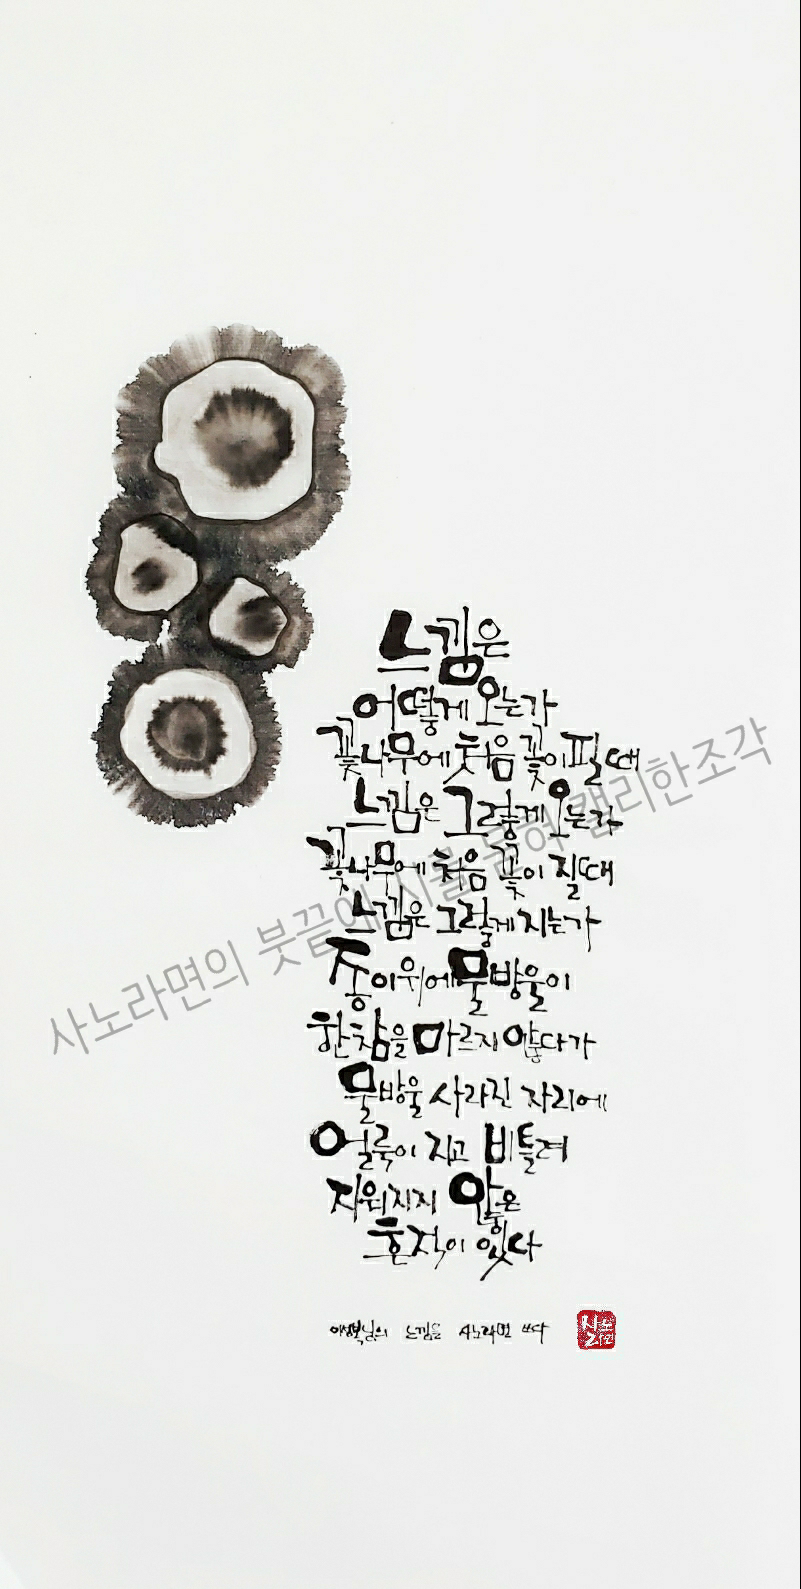 느낌은
어떻게 오는가
꽃나무에 처음 꽃이 필 때
느낌은 그렇게 오는가
꽃나무에 처음 꽃이 질 때
느낌은 그렇게 지는가
종이 위에 물방울이
한참을 마르지 않다가
물방울 사라진 자리에
얼룩이 지고 비틀려
지워지지 않은
흔적이 있다
이성복님의 느낌을 사노라면 쓰다
사노라면
사노라면의 붓끝에 시를 담아 캘리한조각